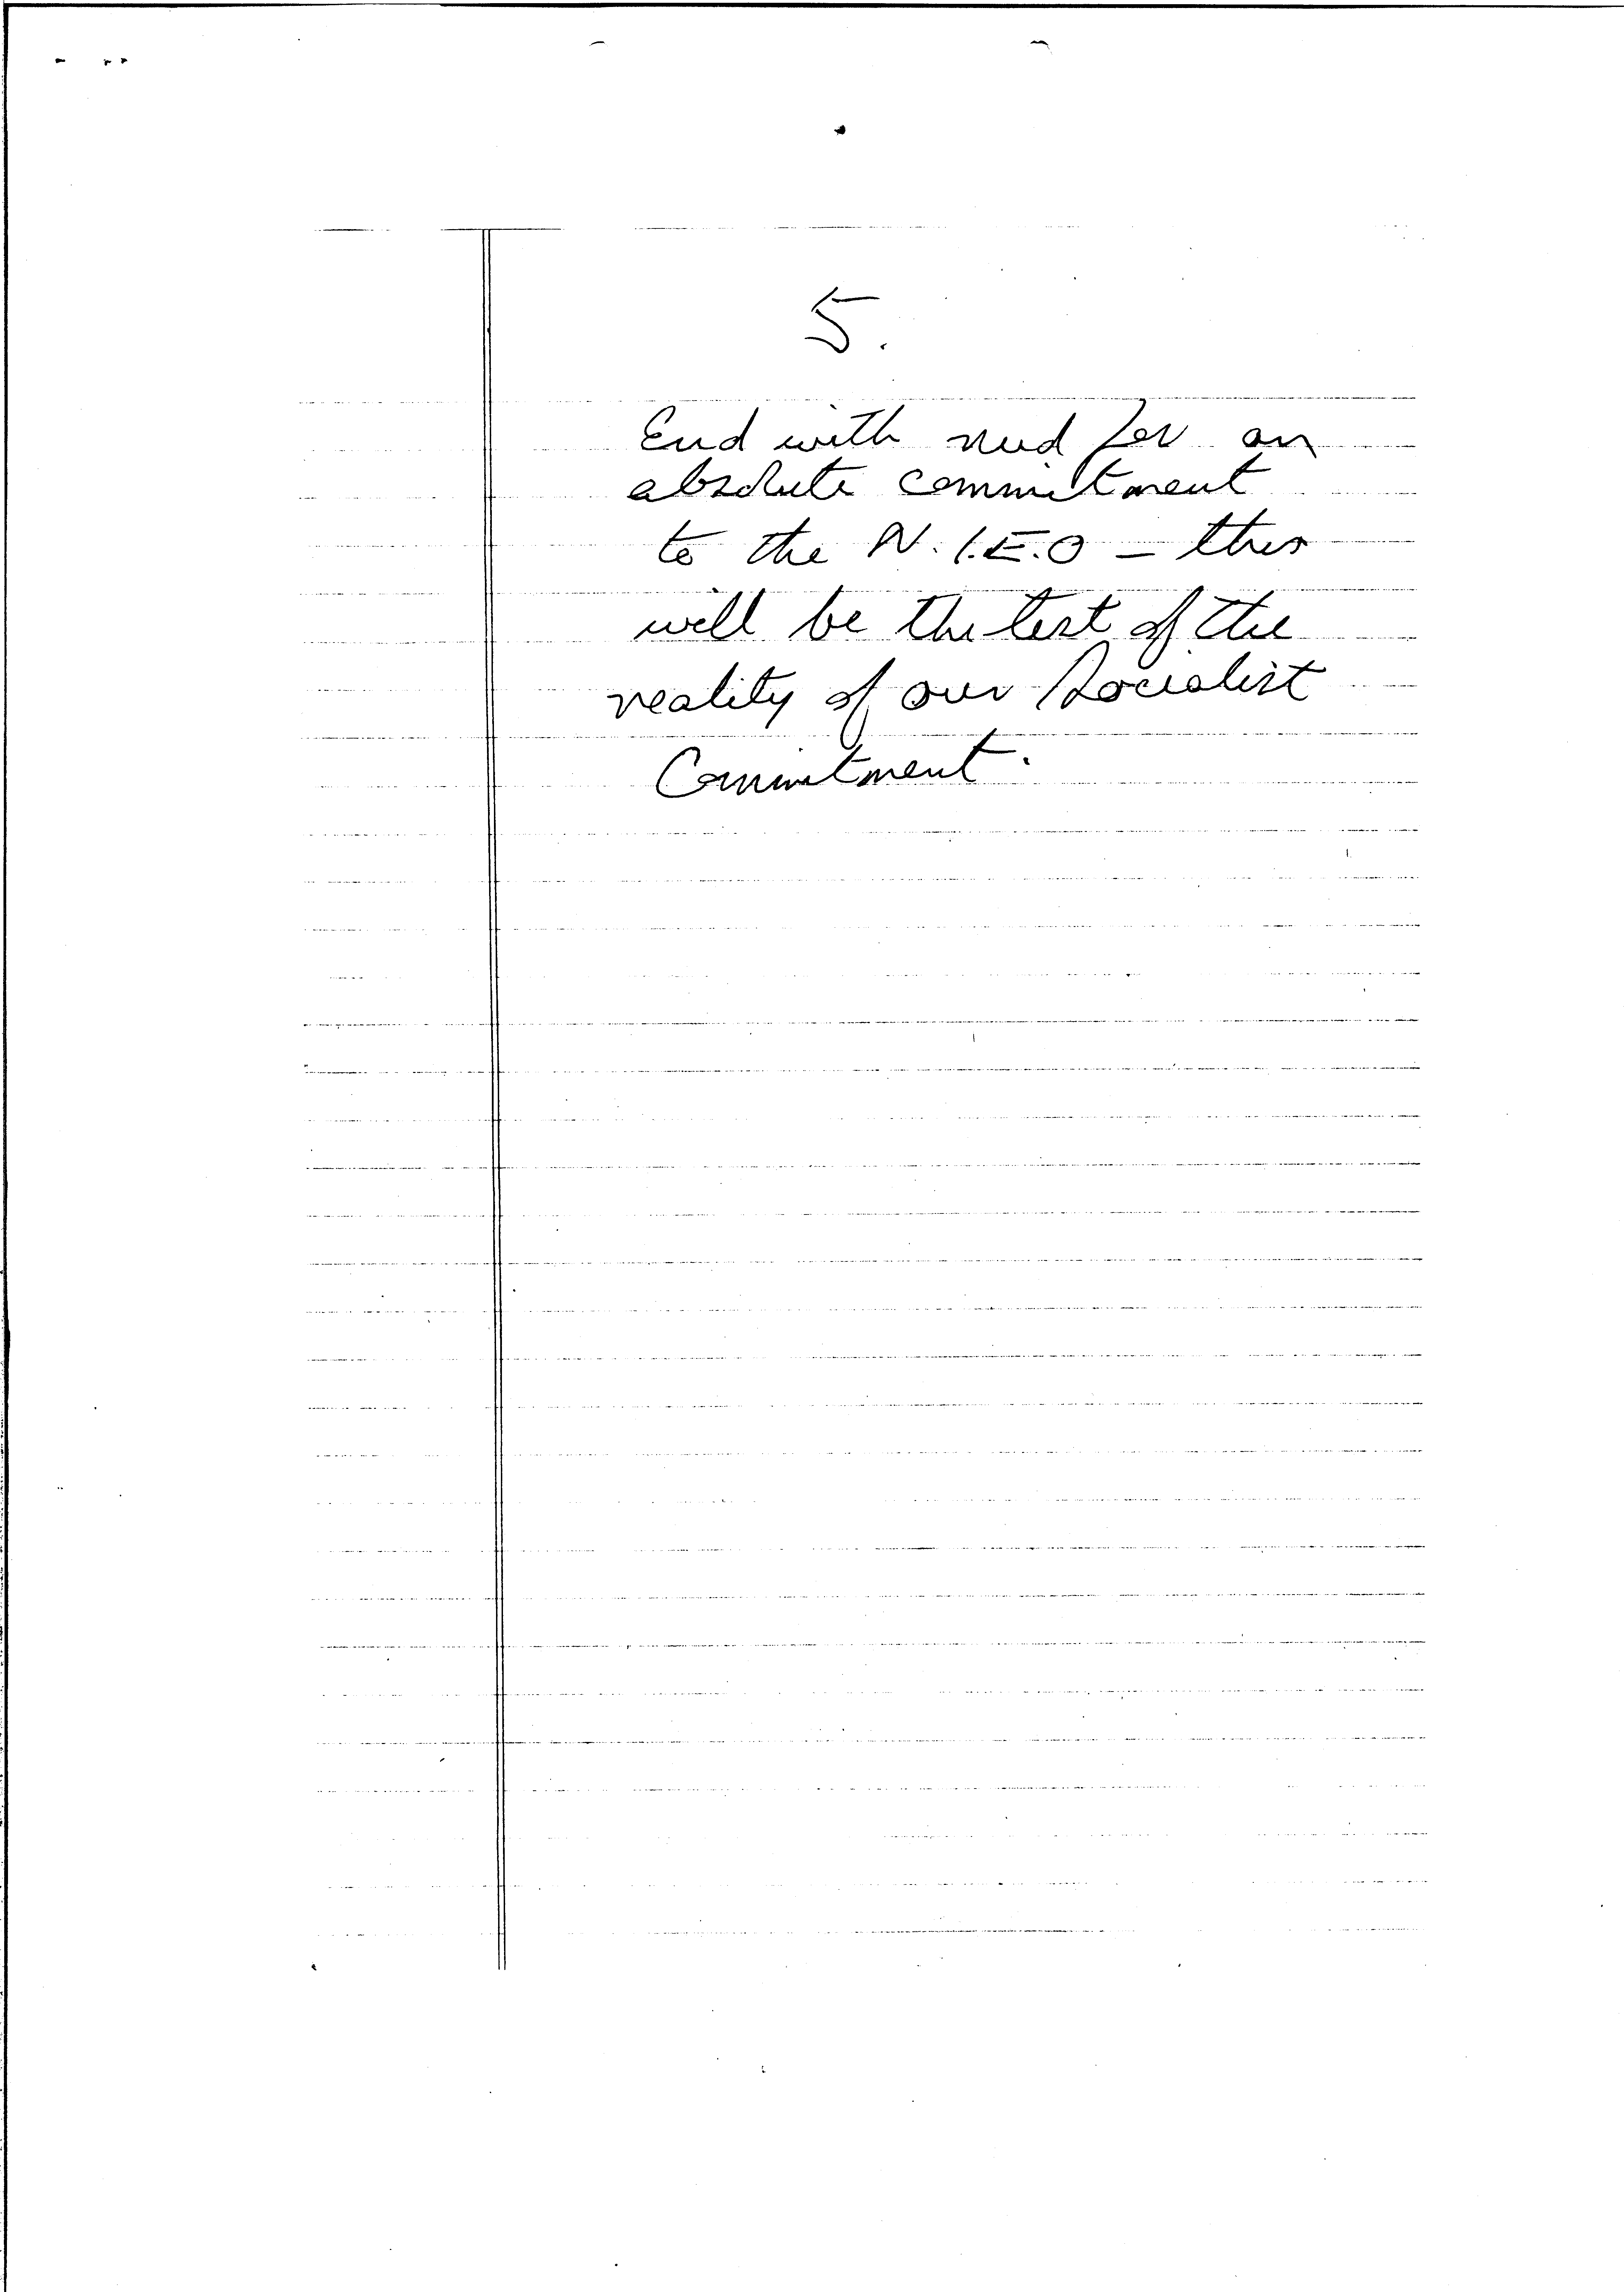 5.
End with need for an
absolute commitment
to the N.I.E.O – this
will be the test of the
reality of our Socialist
Commitment.